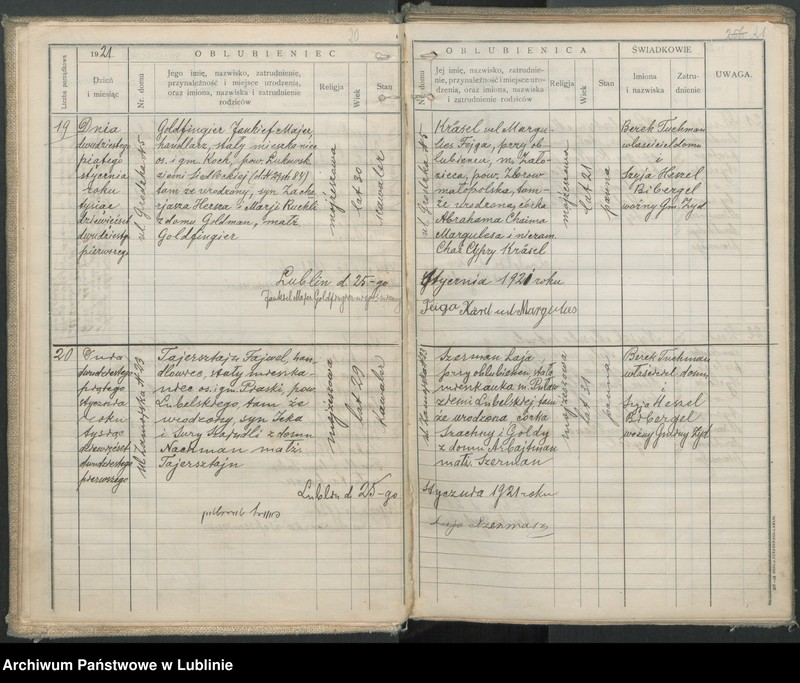 20
1921
OBLUBIENIEC
Liczba porządkowa
Dzień
i miesiąc
Nr. domu
Jego imię, nazwisko, zatrudnienie,
przynależność i miejsce urodzenia,
oraz imiona, nazwiska i zatrudnienie
rodziców
Religja
Wiek
Stan
19
Dnia
dwudziestego
piątego
stycznia
roku
tysiąc
dziewięćset
dwudziestego
pierwszego
ul. Grodzka № 5
Goldfingier Jankiel Majer,
handlarz, stały mieszkaniec
os. i gm. Kock, pow. Łukowsk.
ziemi Siedleckiej
tamże urodzony, syn Zacha-
rjasza Hersza i Marji Ruchli
z domu Goldman, małż.
Goldfingier
mojżeszowa
lat 30
kawaler
Lublin d. 25-go
20
Dnia
dwudziestego
piątego
stycznia
roku
tysiąc
dziewięćset
dwudziestego
pierwszego
ul. Zamojska № 23
Tajersztajn Fajwel, han-
dlowiec, stały mieszka-
niec os. i gm. Piaski, pow.
Lubelskiego, tam że
urodzony, syn Icka
i Sury z domu
Nachman małż.
Tajersztajn
mojżeszowa
lat 29
kawaler
Lublin d. 25-go
21
OBLUBIENICA
ŚWIADKOWIE
UWAGA.
Nr. domu
Jej imię, nazwisko, zatrudnie-
nie, przynależność i miejsce uro-
dzenia, oraz imiona, nazwiska
i zatrudnienie rodziców
Religja
Wiek
Stan
Imiona
i nazwiska
Zatru-
dnienie
ul. Grodzka № 5
Krásel vel Margu-
lies Fejga, przy ob-
lubieńcu, m. Zało-
źiecą, pow. Zborow
małopolska, tam-
że urodzona, córka
Abrahama Chaima
Margulesa i niezam.
Chai Cypry Krásel
mojżeszowa
lat 21
panna
Berek Tuchman
właściciel domu
i
Szyja Heszel
Bibergel
woźny Gm. Żyd.
Stycznia 1921 roku
Feiga
Szerman Łaja,
przy oblubieńcu, stała
mieszkanka m. Puław
ziemi Lubelskiej, tam
że urodzona, córka
Srachny i Goldy
z domu Arbajtman
małż. Szerman
mojżeszowa
lat 31
panna
Berek Tuchman
właściciel domu
i
Szyja Heszel
Bibergel
woźny Gminy Żyd
stycznia 1921 roku
Archiwum Państwowe w Lublinie